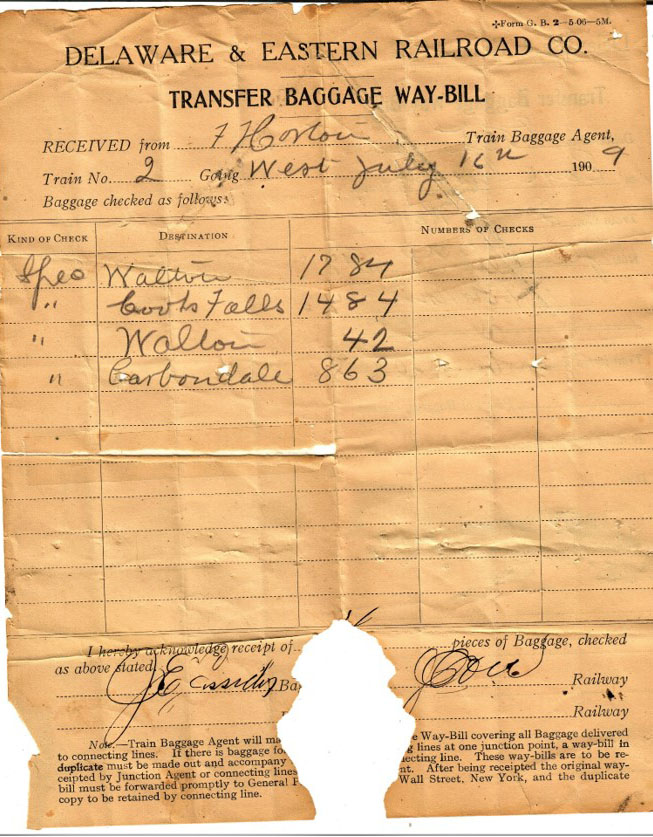 ✣Form G. B. 2—5-06—5M.
DELAWARE & EASTERN RAILROAD CO.
TRANSFER BAGGAGE WAY-BILL
RECEIVED from F Horton Train Baggage Agent,
Train No. 2 Going West July 16th 1909
Baggage checked as follows:
KIND OF CHECK DESTINATION NUMBERS OF CHECKS
Spec Walton 1784
" Cooks Falls 1484
" Walton 42
" Carbondale 863
I hereby acknowledge receipt of pieces of Baggage, checked
as above stated.
J E Cassidy Ba Railway
Railway
Note.—Train Baggage Agent will ma e Way-Bill covering all Baggage delivered
to connecting lines. If there is baggage fo ng lines at one junction point, a way-bill in
duplicate must be made out and accompany necting line. These way-bills are to be re-
ceipted by Junction Agent or connecting lines nt. After being receipted the original way-
bill must be forwarded promptly to General Wall Street, New York, and the duplicate
copy to be retained by connecting line.